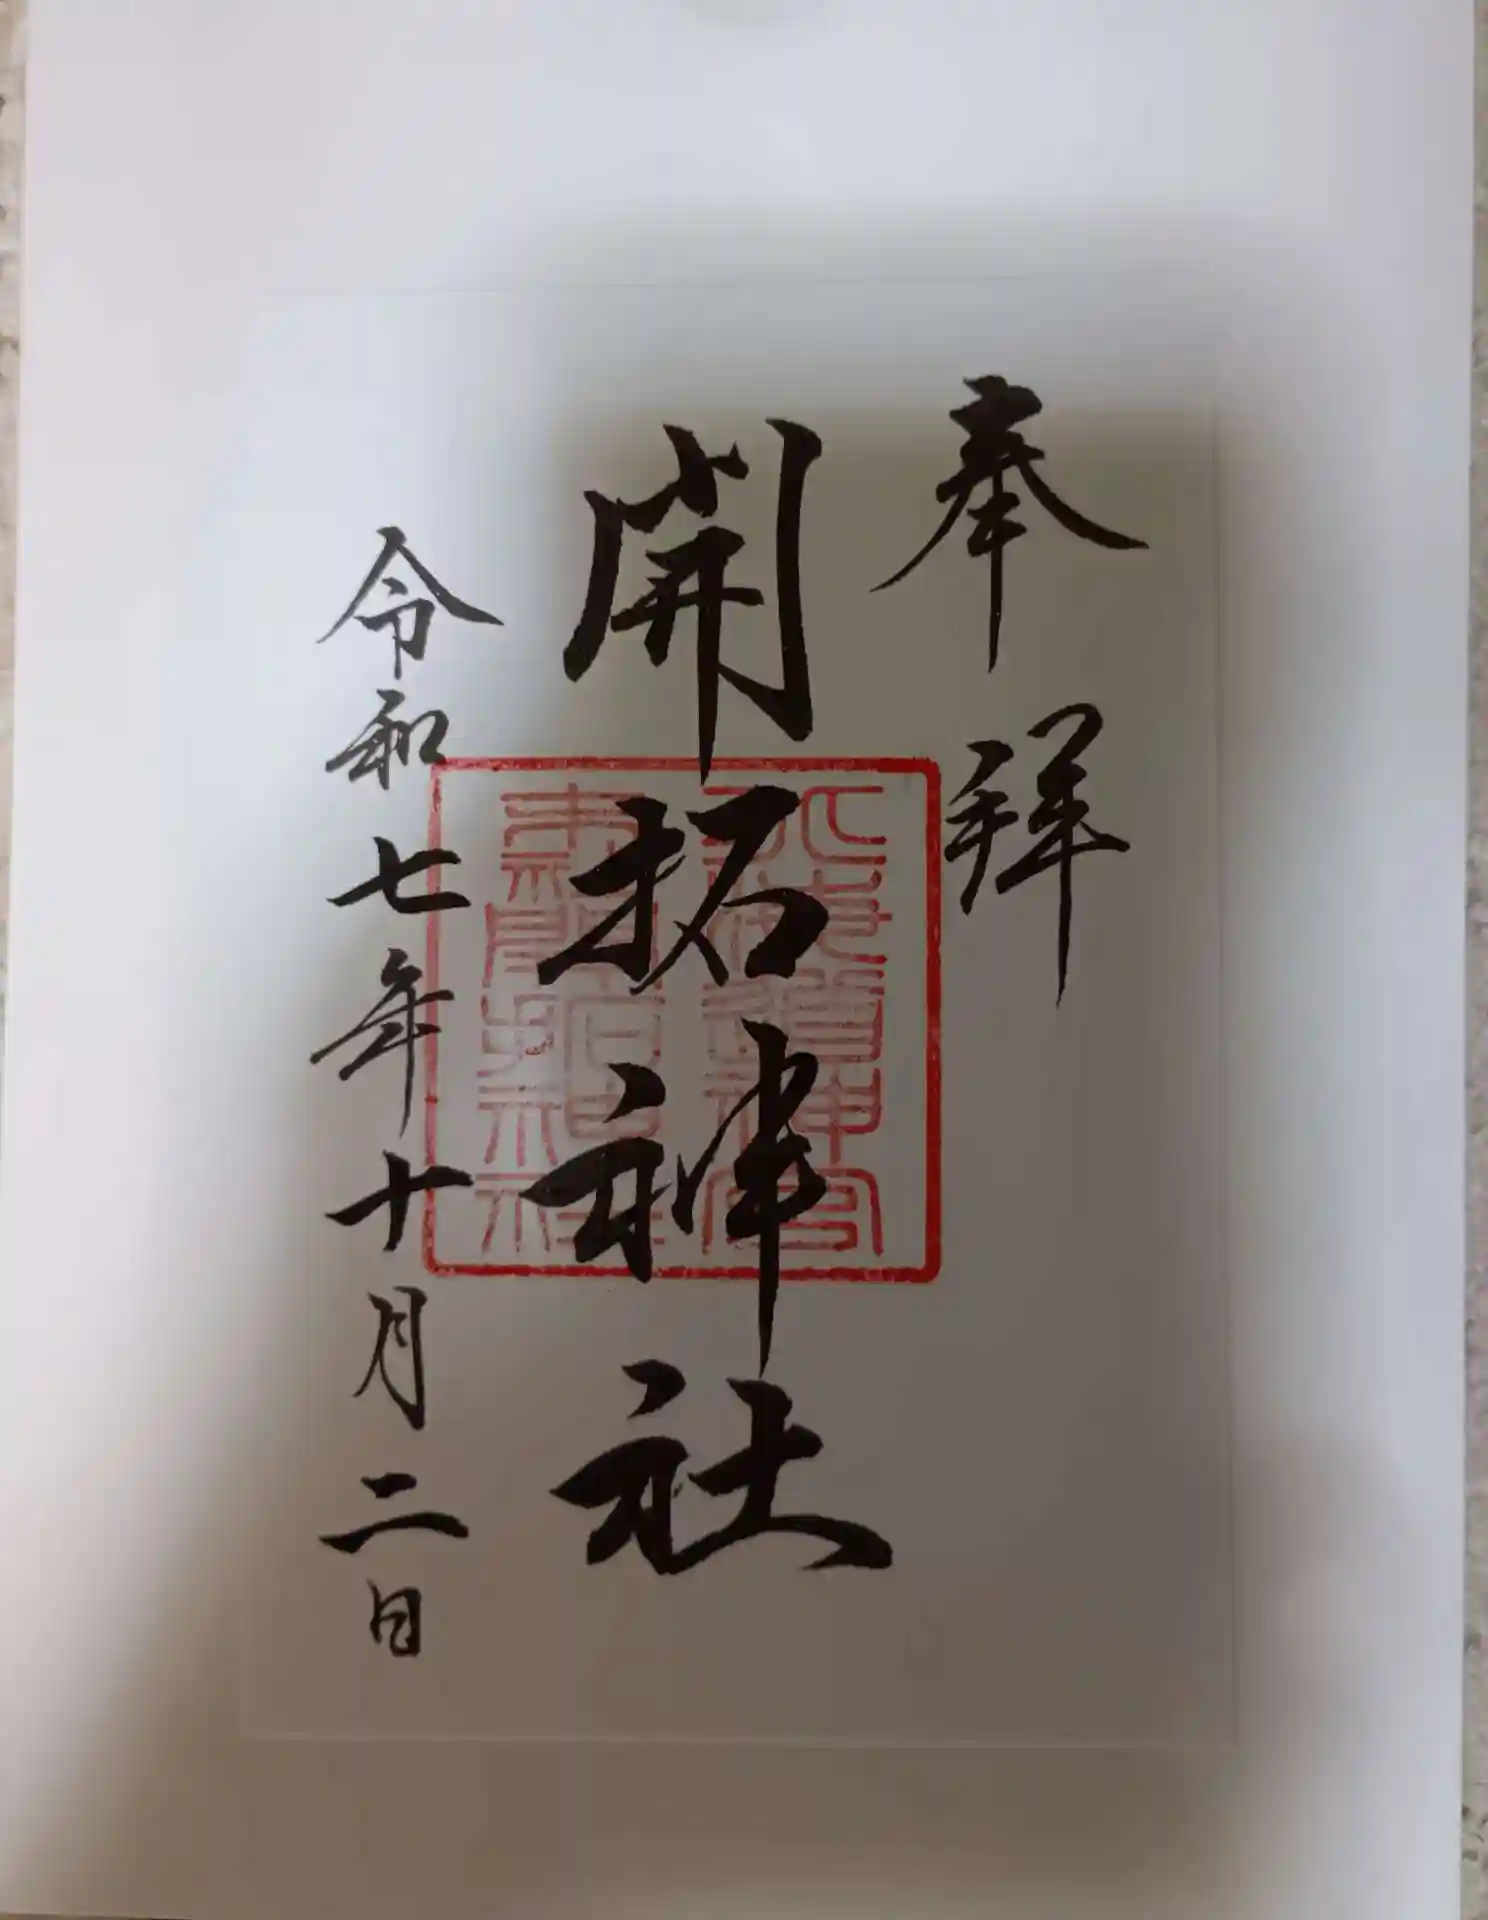 奉拝
開拓神社
令和七年十月二日
北海道神宮
末社開拓神社